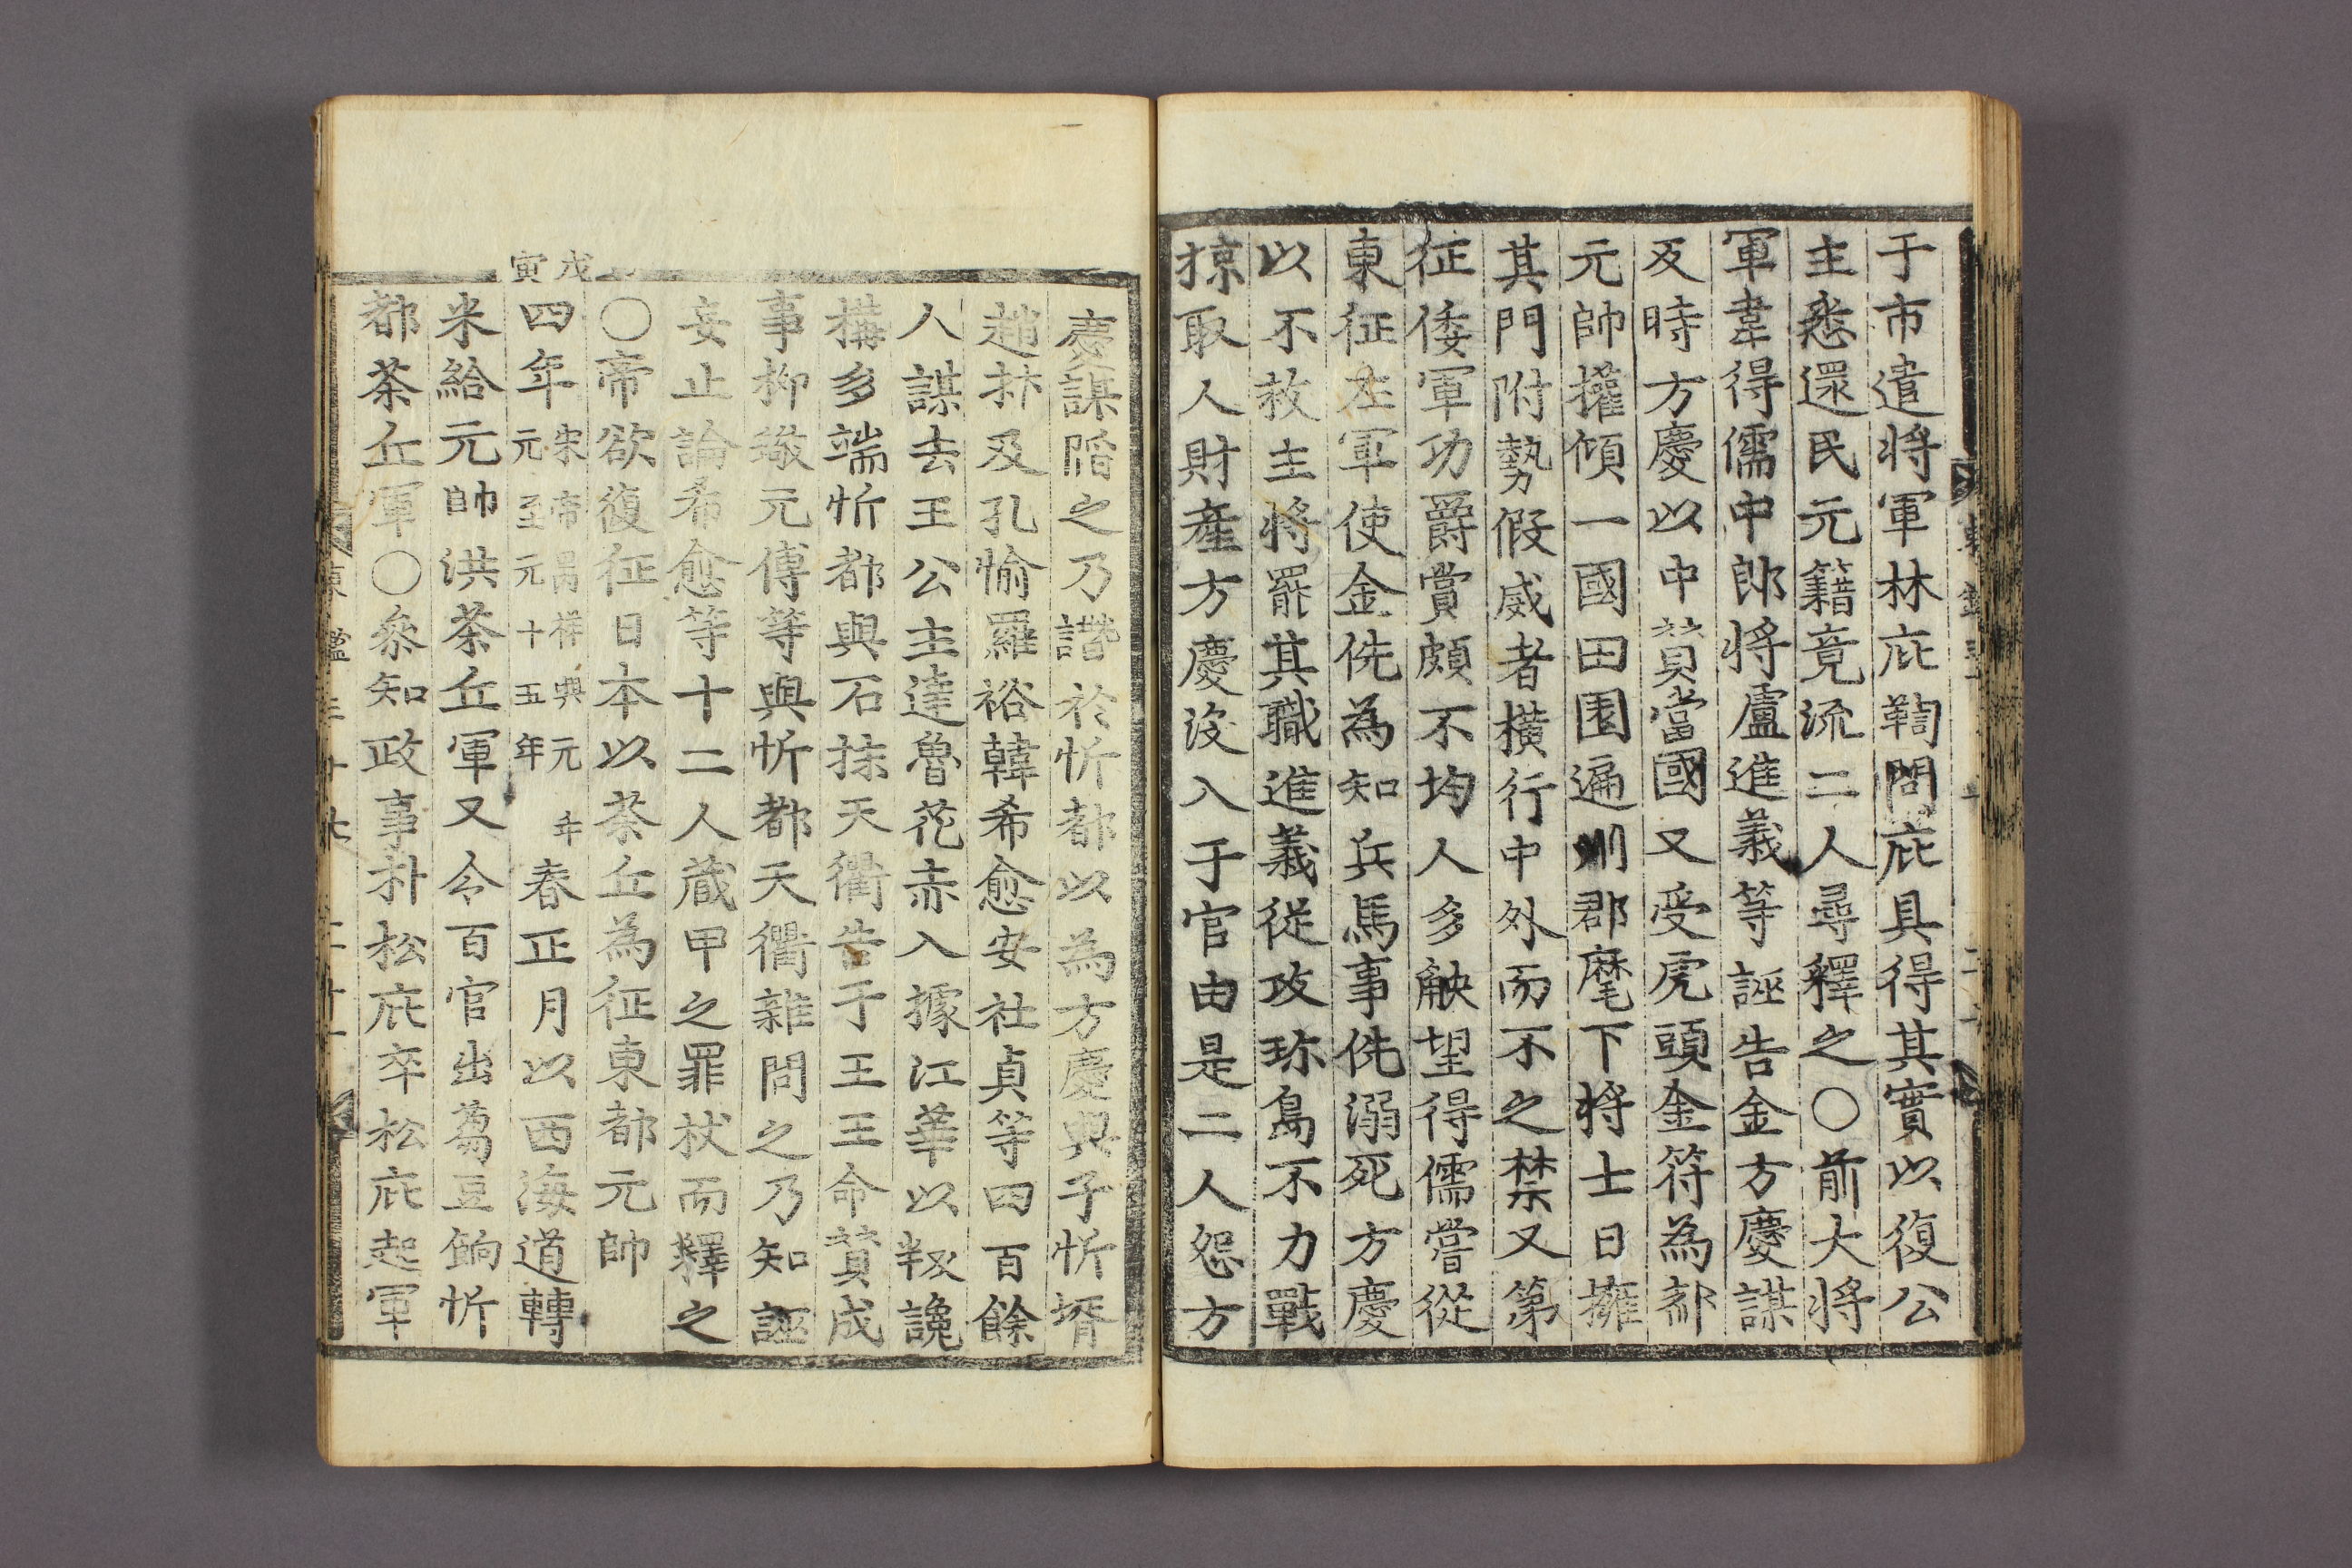 于市遣將軍林庇鞫問庇具得其實以復公
主悉還民元籍竟流二人尋釋之○前大將
軍韋得儒中郎將盧進義等誣告金方慶謀
叛時方慶以中贊當國又受虎頭金符為都
元帥權傾一國田園遍州郡麾下將士日擁
其門附勢假威者橫行中外而不之禁又第
征倭軍功爵賞頗不均人多觖望得儒嘗從
東征左軍使金侁為知兵馬事侁溺死方慶
以不救主將罷其職進義從攻珎島不力戰
掠取人財產方慶沒入于官由是二人怨方
慶謀陷之乃譖於忻都以為方慶與子忻壻
趙抃及孔愉羅裕韓希愈安社貞等四百餘
人謀去王公主達魯花赤入據江華以叛讒
構多端忻都與石抹天衢告于王王命贊成
事柳璥元傅等與忻都天衢雜問之乃知誣
妄止論希愈等十二人蔵甲之罪杖而釋之
○帝欲復征日本以茶丘為征東都元帥
戊寅
四年宋帝昺祥興元年元至元十五年春正月以西海道轉
米給元帥洪茶丘軍又令百官出蒭豆餉忻
都茶丘軍○叅知政事朴松庇卒松庇起軍
東鑑三十七 二十一